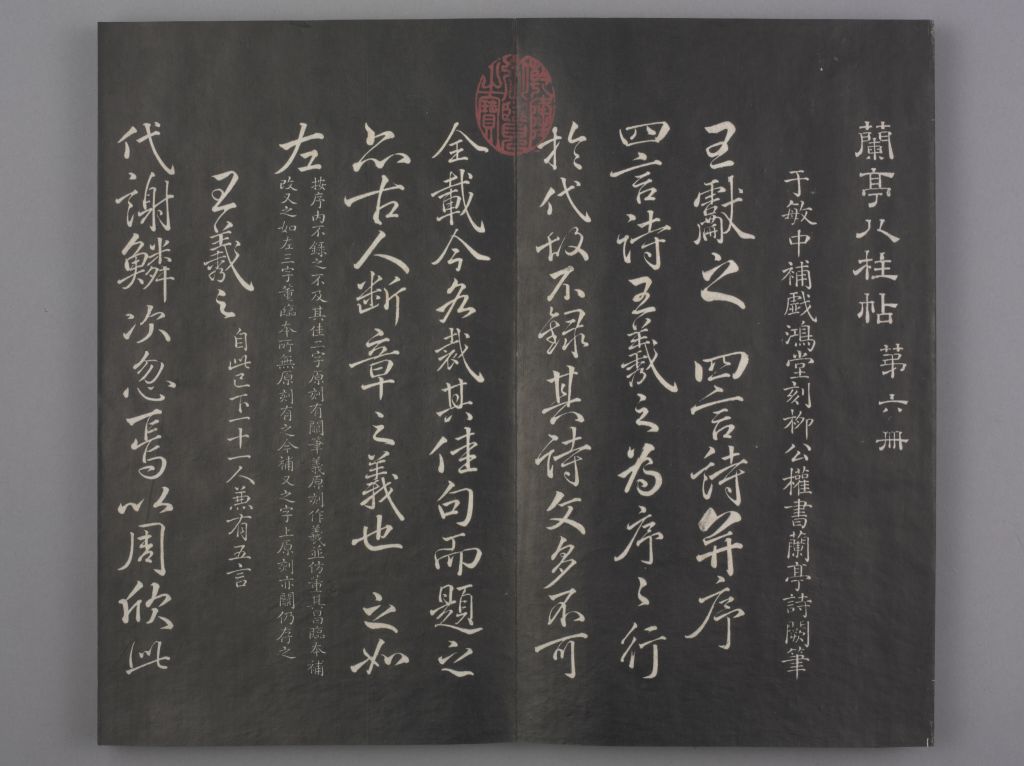 蘭亭八柱帖 第六冊
于敏中補戲鴻堂刻柳公權書蘭亭詩闕筆
王獻之 四言詩并序
四言詩王羲之為序序行
於代故不録其詩文多不可
全載今各裁其佳句而題之
亦古人斷章之義也 之如
左
按序內不録之不及其佳二字原刻有闕筆義原刻作羲並仿董其昌臨本補
改又之如左三字董臨本所無原刻有之今補又之字上原刻亦闕仍存之
王羲之 自此已下十一人兼有五言
代謝鱗次忽焉以周欣此